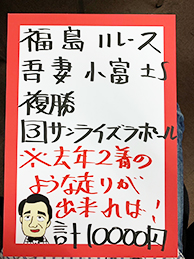 福島11レース
吾妻小富士S
複勝
3サンライズラポール
※去年2着の
ような走りが
出来れば!
計10000円